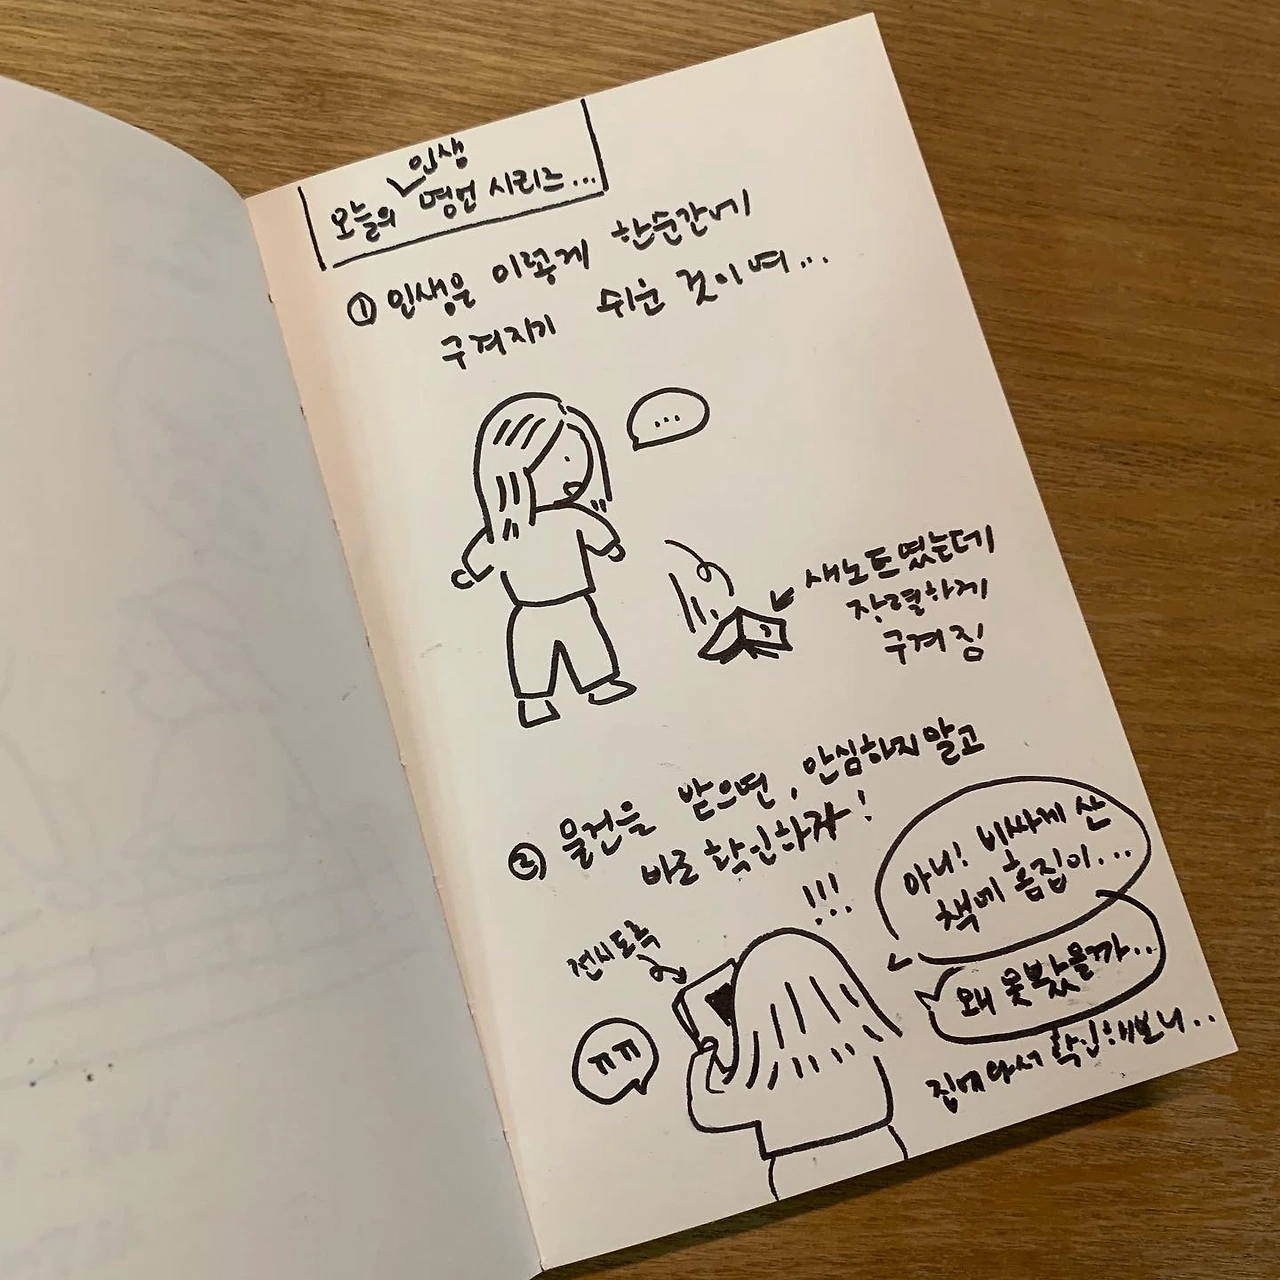 오늘의 인생 명언 시리즈...
① 인생은 이렇게 한순간에
구겨지기 쉬운 것이며...
...
새노트였는데
장렬하게
구겨짐
② 물건을 받으면, 안심하지말고
바로 확인하자!
!!!
아니! 비싸게 산
책에 흠집이...
왜 못봤을까..
전시도록
ㅠㅠ
집에와서 확인해보니..